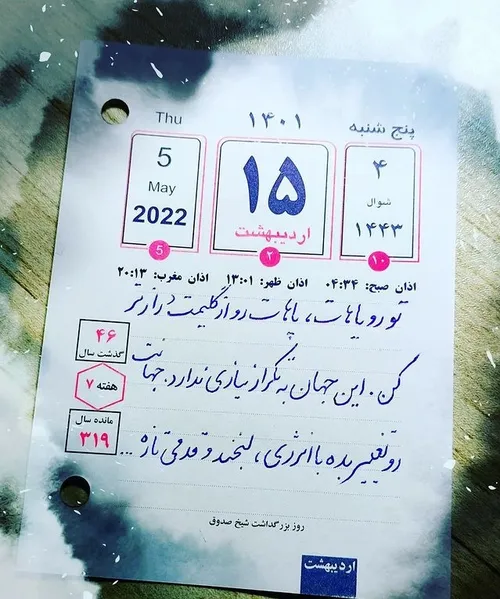 پنج شنبه ۱۴۰۱ Thu
۴ شوال ۱۴۴۳ ۱۰
۱۵ اردیبهشت ۲
5 May 2022 5
اذان صبح: ۰۴:۳۴ اذان ظهر: ۱۳:۰۱ اذان مغرب: ۲۰:۱۳
تو رویاهات، پاهات رو از گلیمت درازتر
کن. این جهان به تکرار نیازی ندارد. جهانت
رو تغییر بده با انرژی، لبخند و قدمی تازه ...
۴۶ گذشت سال
هفته ۷
مانده سال ۳۱۹
روز بزرگداشت شیخ صدوق
اردیبهشت